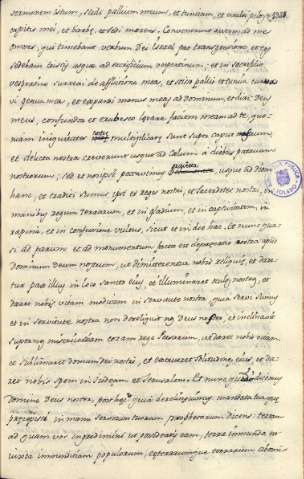 sermonem istum, scidi pallium meum, et tunicam, et evulsi pilos
capitis mei, et barbę, et sedi moerens. Convenerunt autem ad me
omnes, qui timebant verbum Dei Israel pro transgressione, et ego
sedebam tristis usque ad sacrificium vespertinum: et in sacrificio
vespertino surrexi de afflictione mea, et scisso pallio et tunica curva
vi genua mea, et expandi manus meas ad dominum, et dixi: Deus
meus, confundor et erubesco levare faciem meam ad te, quo
niam iniquitates multiplicatę sunt super caput
et delicta nostra creverunt usque ad Cęlum à diebus patrum
nostrorum; sed et nos ipsi peccavimus usque ad diem
hanc, et traditi sumus ipsi et reges nostri, et sacerdotes nostri, in
manibus regum terrarum, et in gladium, et in captivitatem, in
rapinam, et in confusione vultus, sicut et in die hac. Et nunc qua
si ad parum et ad momentum facta est deprecatio nostra apud
dominum deum nostrum, ut dimitterentur nobis reliquię, et dare
tur pax illius in loco sancto eius, et illuminaret oculos nostros, et
daret nobis vitam modicam in servitute nostra, quia servi sumus
et in servitute nostra non dereliquit nos Deus noster, et inclinavit
super nos misericordiam coram rege Persarum, ut daret nobis vitam
et sublimaret domum dei nostri, et extrueret solitudines eius, et da
ret nobis spem in Iudęam et Ierusalem. Et nunc quid dicemus
domine Deus noster, post hęc? quia dereliquimus mandata tua quę
pręcepisti in manu servorum tuorum prophetarum dicens: terra
ad quam vos ingredimini ut possideatis eam, terra immunda est
iuxta immunditiam populorum, ceterarumque terrarum abomi